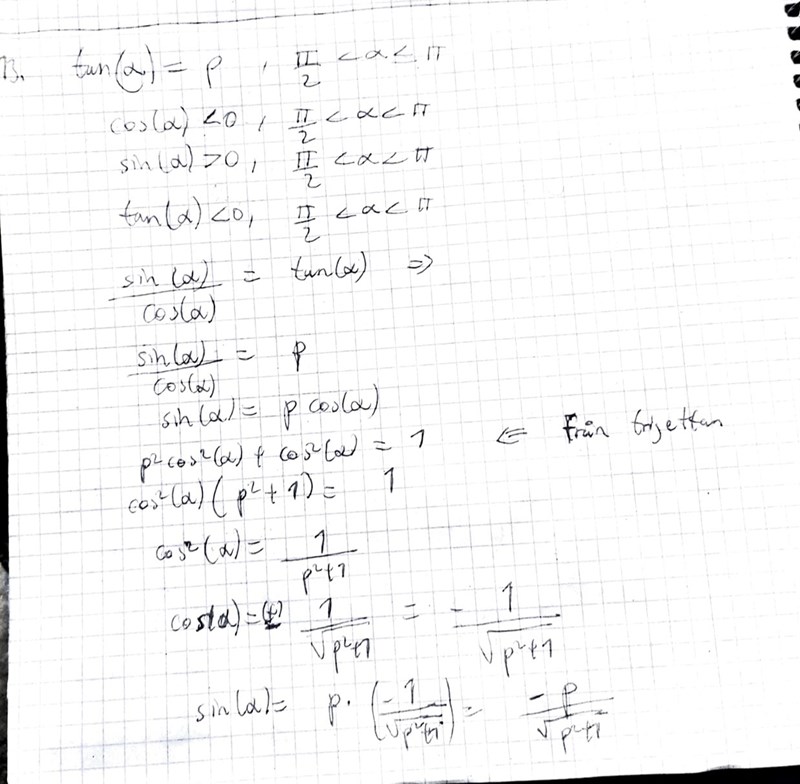 13. tan(α) = p , π/2 < α < π
cos(α) < 0 , π/2 < α < π
sin(α) > 0 , π/2 < α < π
tan(α) < 0, π/2 < α < π
sin(α)/cos(α) = tan(α) ⇒
sin(α)/cos(α) = p
sin(α) = p cos(α)
p²cos²(α) + cos²(α) = 1 ⇐ Från trigettan
cos²(α)(p²+1) = 1
cos²(α) = 1/(p²+1)
cos(α) = (±) 1/√(p²+1) = - 1/√(p²+1)
sin(α) = p · (-1/√(p²+1)) = -p/√(p²+1)